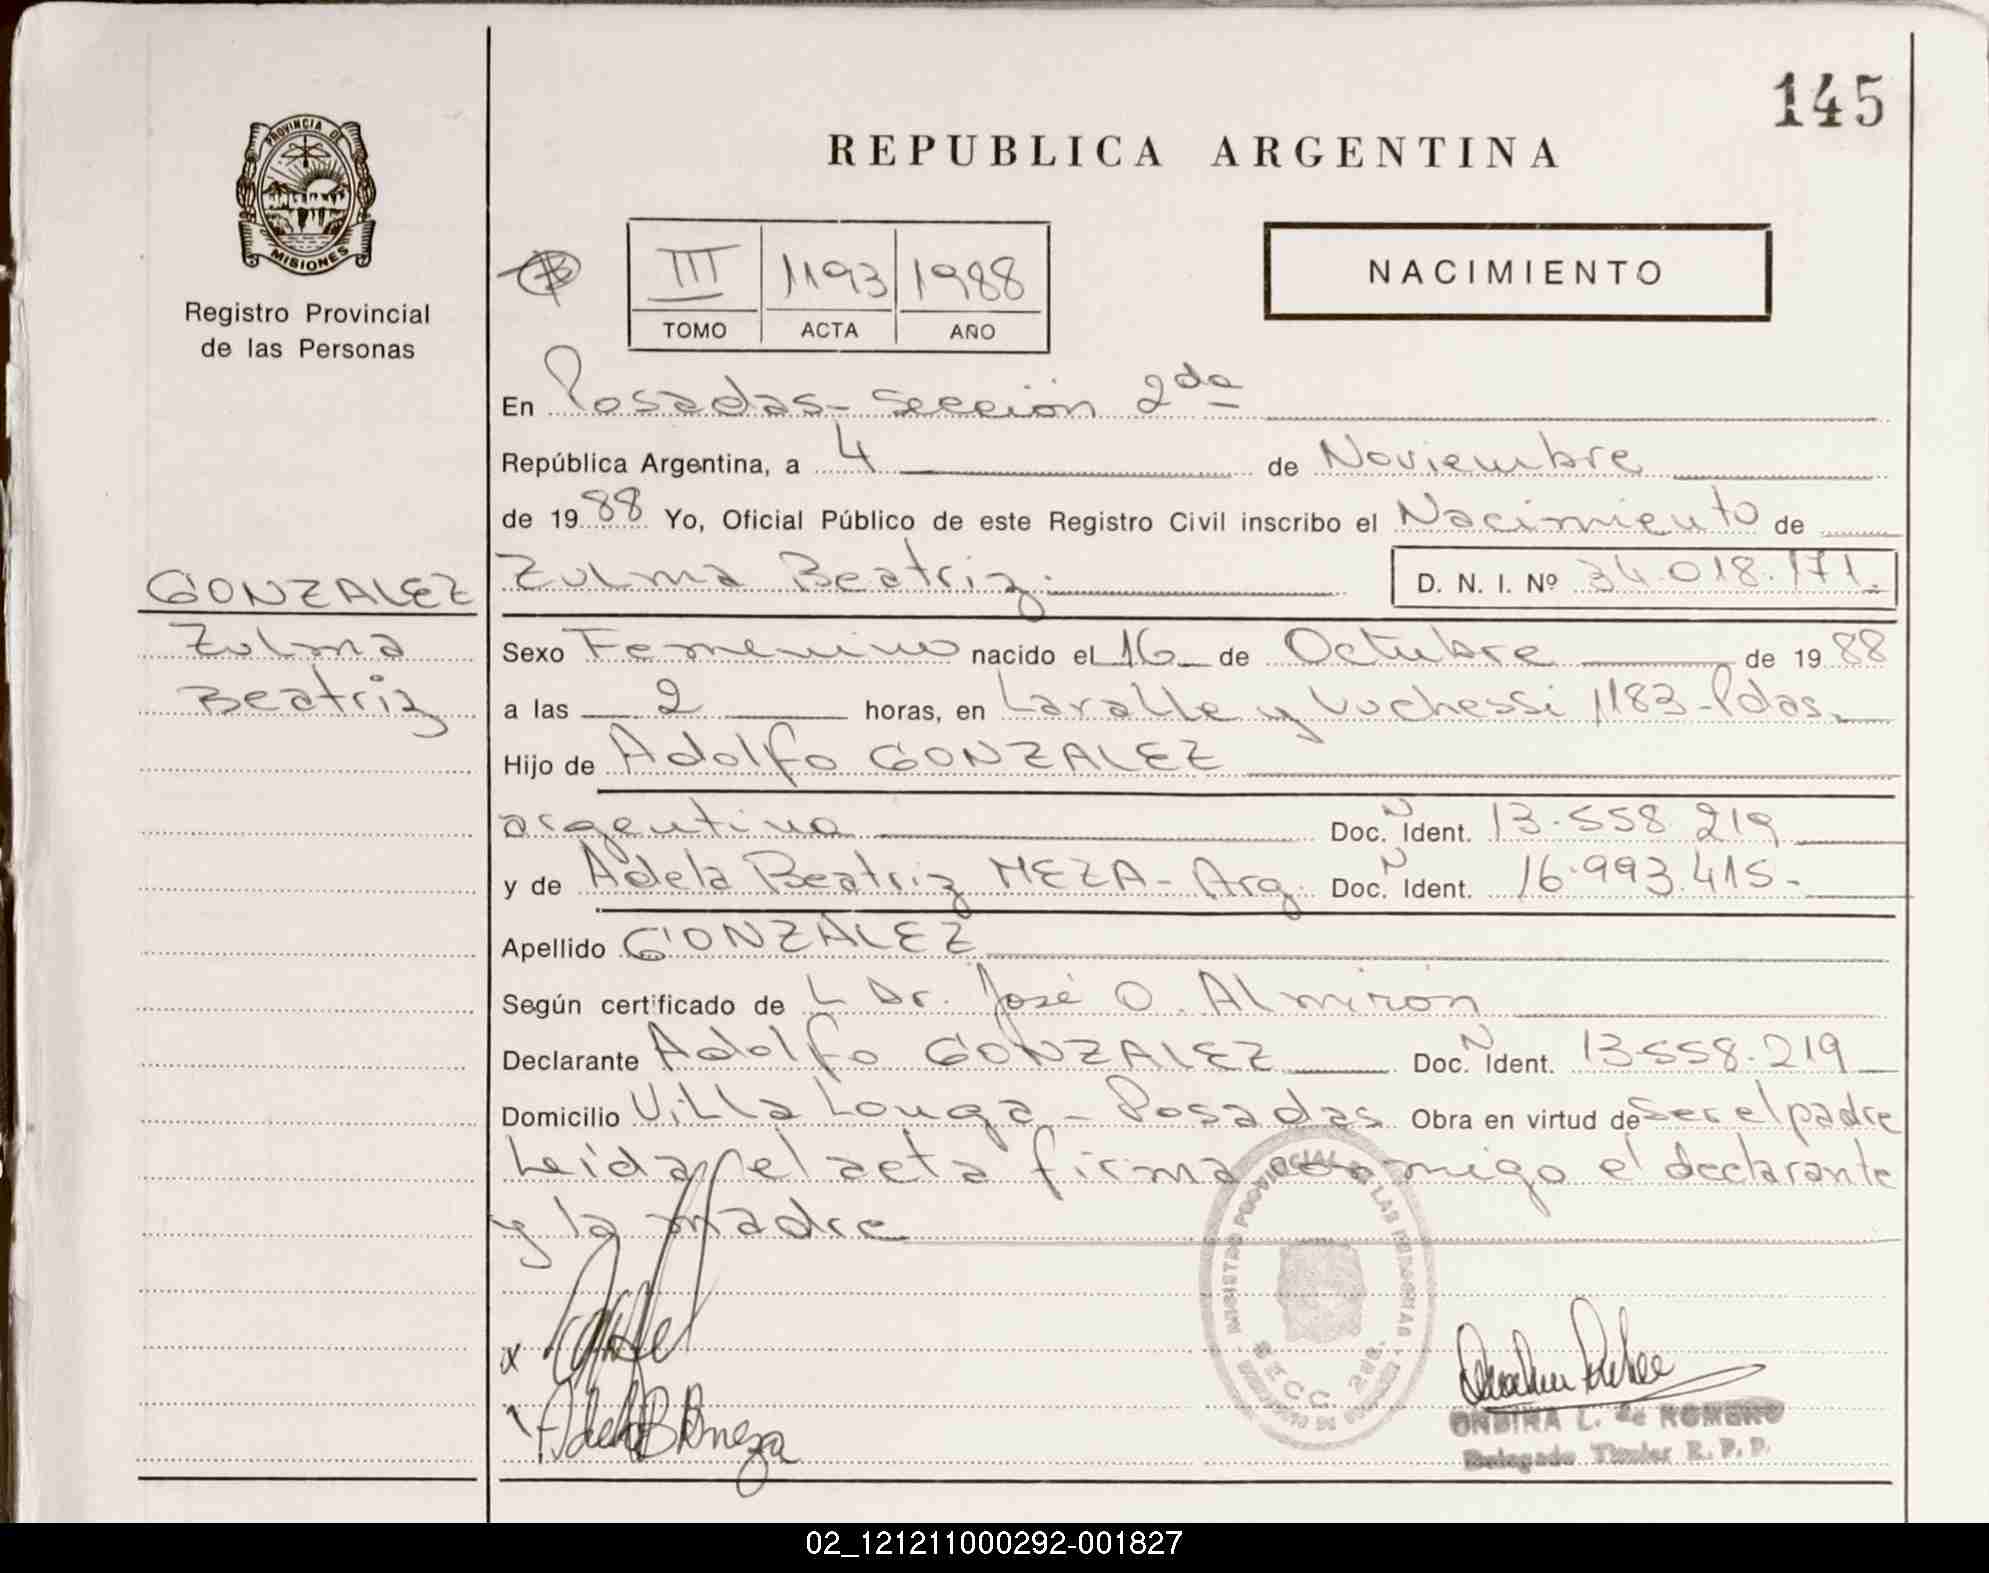 145
REPUBLICA ARGENTINA
PROVINCIA DE
MISIONES
Registro Provincial
de las Personas
III 1193 1988
TOMO ACTA AÑO
NACIMIENTO
En Posadas - Sección 2da
República Argentina, a 4 de Noviembre
de 1988 Yo, Oficial Público de este Registro Civil inscribo el Nacimiento de
GONZALEZ
Zulma Beatriz. D. N. I. Nº 34.018.171.
Zulma
Beatriz
Sexo Femenino nacido el 16 de Octubre de 1988
a las 2 horas, en Lavalle y Luchessi 1183 - Pdas.
Hijo de Adolfo GONZALEZ
argentino Doc. N Ident. 13.558.219
y de Adela Beatriz MEZA - Arg. Doc. N Ident. 16.993.415.-
Apellido GONZALEZ
Según certificado de L Dr. José O. Almirón
Declarante Adolfo GONZALEZ Doc. N Ident. 13.558.219
Domicilio Villa Longa - Posadas Obra en virtud de ser el padre
Leida el acta firma conmigo el declarante
y la madre
x
Adela B Meza
REGISTRO PROVINCIAL DE LAS PERSONAS
SECC. 2da.
ONDINA L. de ROMERO
Delegado Titular R. P. P.
02_121211000292-001827